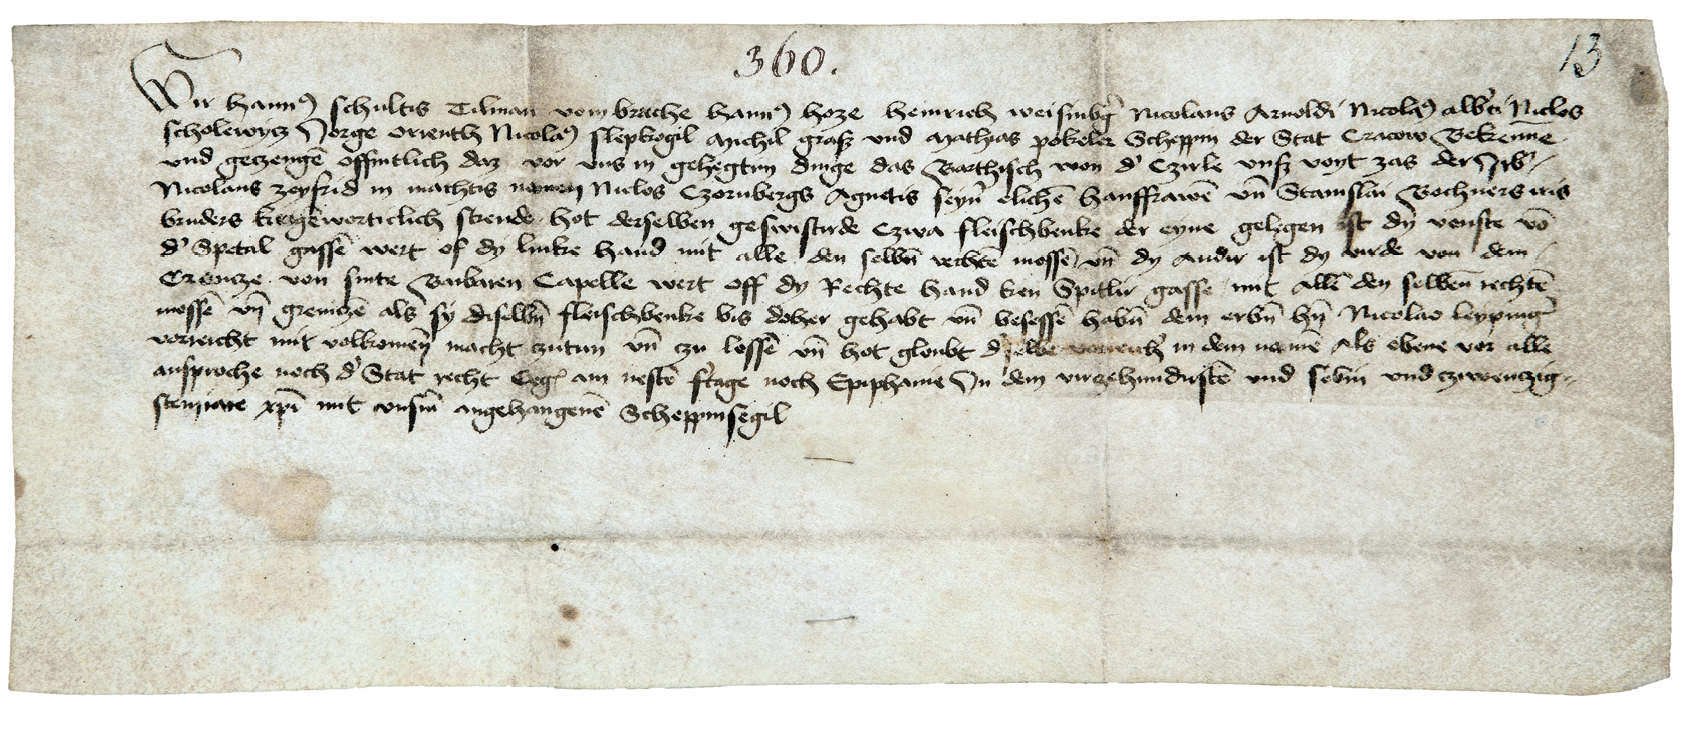 360.
13
Wir Hannꝰ schultis Tilman vom brache Hannꝰ Hoze Heinrich weisinbˀg Nicolaus Arnoldi Nicolaꝰ albˀti Niclos
scholewycz Jorge orienth Nicolaꝰ slepkogil Michil grasz vnd Mathias pokeler Scheppin der Stat Cracow Bekenne
vnd geczeugē offintlich daz vor vns in gehegtim dinge das Barthisch von dˀ Czirle vnsz voyt zas der
Nicolaus zeyfrid in machtis namen Niclos Czornbergs Agnetis seynˀ elichē hausffrawē vn̄ Stanislai Bochners iris
bruders kegēworticlich steende hot derselben geswistirde Czwa fleischbenke der eyne gelegen ist dy vonfte vō
dˀ Spetal gassē wert of dy linke hand mit alle den selbn̄ rechtē mossē vn̄ dy andir ist dy virde von dem
Creucze von sinte Barbaren Capelle wert off dy Rechte hand ken Spitlir gasse mit allē den selbēn rechtē
mossē vn̄ grenitczē als sy diselbn̄ fleischbenke bis doher gehabt vn̄ besessē habn̄ dem erbn̄ hn̄ Nicolao leypnigˀ
vorreicht mit volkomenˀ macht czutun vn̄ czu lossē vn̄ hot gloubt dˀselbe vorreichˀ in dem namē als ebene vor alle
ansproche noch dˀ Stat recht Gegˀ am nestē frˀtage noch Epiphanie In dem virczehindirstē vnd sebin vnd czwenczig
stem iare xp̄i mit vnsˀm angehangenē Scheppinsegil